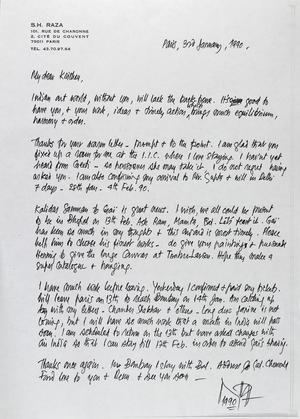 S.H. RAZA
101, RUE DE CHARONNE
2, CITÉ DU COUVENT
75011 PARIS
TEL. 43.70.97.64
Paris, 3rd January, 1990.
My dear Krishen,
Indian art world, without you, will lack the good to
have you, & your work, ideas & timely action, brings much equilibrium,
harmony & order.
Thanks for your warm letter - prompt & to the point. I am glad that you
fixed up a room for me at the I.I.C. where I love staying. I haven't yet
heard from - so she may take it. I do not regret having
asked you. I am also confirming my arrival to Mr. Gupta & will in Delhi
7 days - 28th Jan. - 4th Feb. 90.
Kalidas Samman to is great news. I wish, we all could be present
to be in Bhopal on 13th Feb. Ask Ram, Mamta, Bal
has been so much in my thought & this award is most timely. Please
help him to choose his finest works - do give your paintings & persuade
to give the huge Canvas at Hope they make a
super Catalogue & hanging.
I have much work before leaving. Yesterday I confirmed & paid my tickets.
Will leave Paris on 13th, to reach Bombay on 14th Jan. Am catching up
day with my letters - & others - Long due. is not
coming, but I will have so much work that a month in India will pass
soon. I am scheduled to return on the 13th but have asked changes with
Air India so that I can stay till 17th Feb. in order to
Thanks once again. In Bombay I stay with Bal.
Fond love to you & Renu & see you soon -
1990